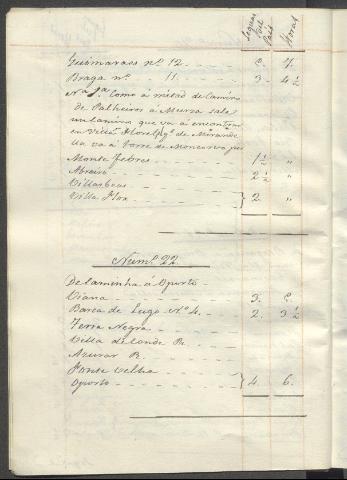 Leguas del Pais Horas
Guimaraes nº 12. 2. 7.
Braga nº. 11. 3. 4½
Nª 1ª Como á mitad de Camino
de Palheiros á Murza sale
un Camino que va á encontrar
en Villa Flor el qº de Mirande
lla va á Torre de Moncorvo, por
Monte Febres 1½ "
Abreiro 2½ "
Villasboas
Villa Flor } 2. "
Numº 22.
De Caminha á Oporto
Viana 3.
Barca de Lugo Nº 4. 2. 3½
Terra Negra
Villa de Conde R.
Azurar R.
Ponte Velha
Oporto } 4. 6.